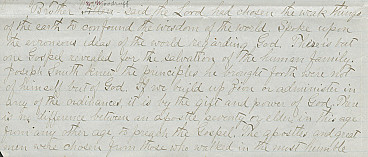 Woodruff
Brother said the Lord had chosen the weak things
of the earth to confound the wisdom of the world. Spoke upon
the erroneous ideas of the world regarding God. There is but
one Gospel revealed for the salvation of the human family.
Joseph Smith knew the principles he brought forth were not
of himself but of God. If we build up Zion or administer in
any of the ordinances, it is by the gift and power of God. There
is no difference between an apostle, seventy or elder in this age
from any other age to preach the Gospel. The apostles and great
men were chosen from those who walked in the most humble